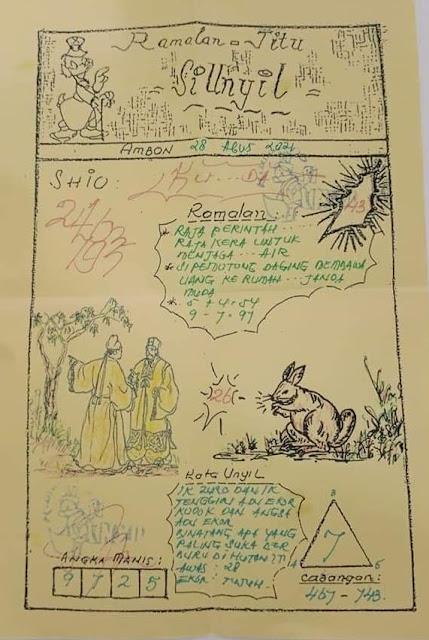 Ramalan - Jitu
Si Unyil
AMBON 28 AGUS 2021
SHIO:
Ramalan:
* RAJA PERINTAH...
RAJA KERA UNTUK
MENJAGA... AIR
* SIPEMOTONG DAGING MEMBAWA
UANG KE RUMAH... JANDA
MUDA
* 5 + 4 = 54
9 - 7 = 97
26
Kata Unyil
IK ZURO DAN IK
TENGGIRI ADU EKOR
KODOK DAN ANGSA
ADU EKOR
BINATANG APA YANG
PALING SUKA BER
BURU DI HUTAN ???
AWAS : 28
EKOR : TUJUH
ANGKA MANIS:
9 7 2 5
7
Cadangan:
467 - 743.